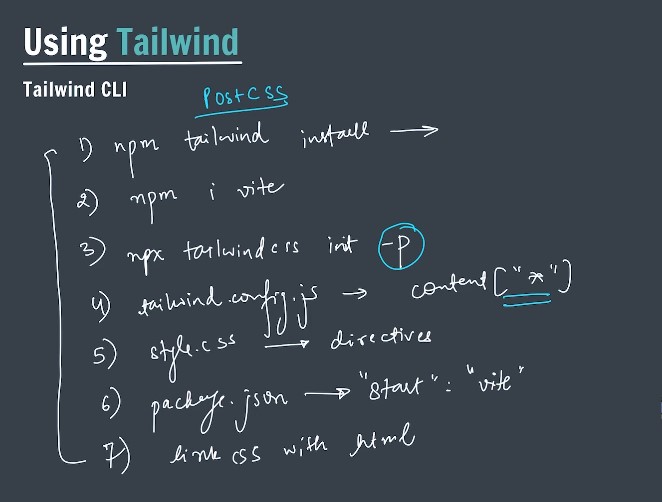 Using Tailwind
Tailwind CLI
PostCSS
1) npm tailwind install →
2) npm i vite
3) npx tailwindcss init -p
4) tailwind.config.js → content ["*"]
5) style.css → directives
6) package.json → "start" : "vite"
7) link css with html